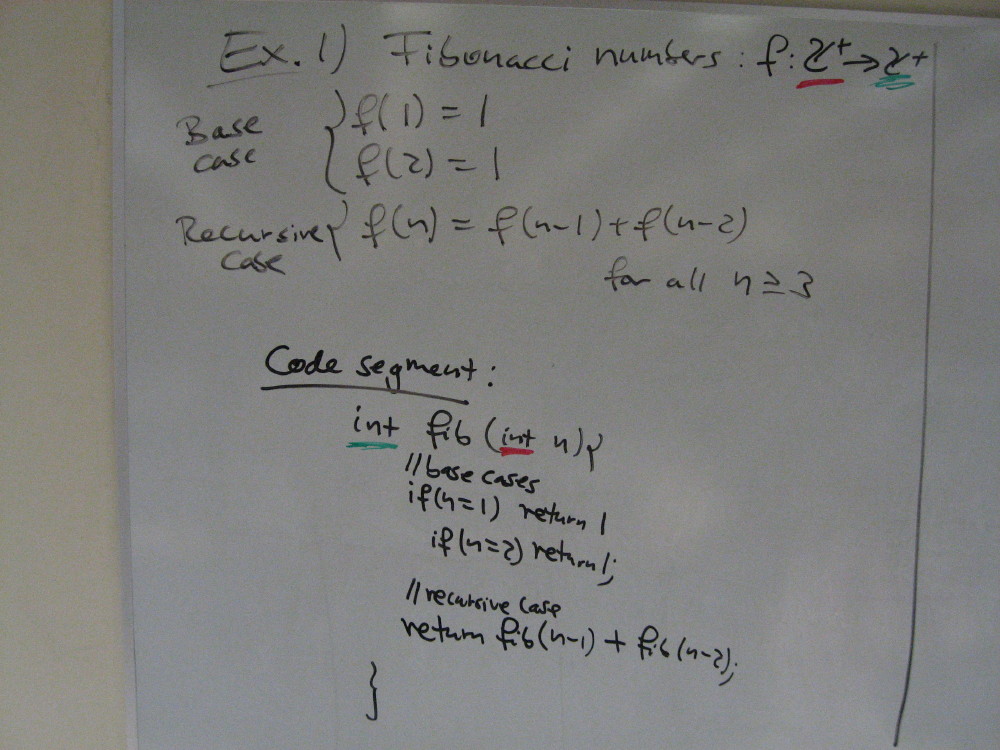 Ex. 1) Fibonacci numbers : f: Z⁺→Z⁺
Base case } { f(1) = 1
f(2) = 1
Recursive case } f(n) = f(n-1) + f(n-2)
for all n ≥ 3
Code segment:
int fib (int n) {
//base cases
if(n=1) return 1
if(n=2) return 1;
//recursive case
return fib(n-1) + fib(n-2);
}